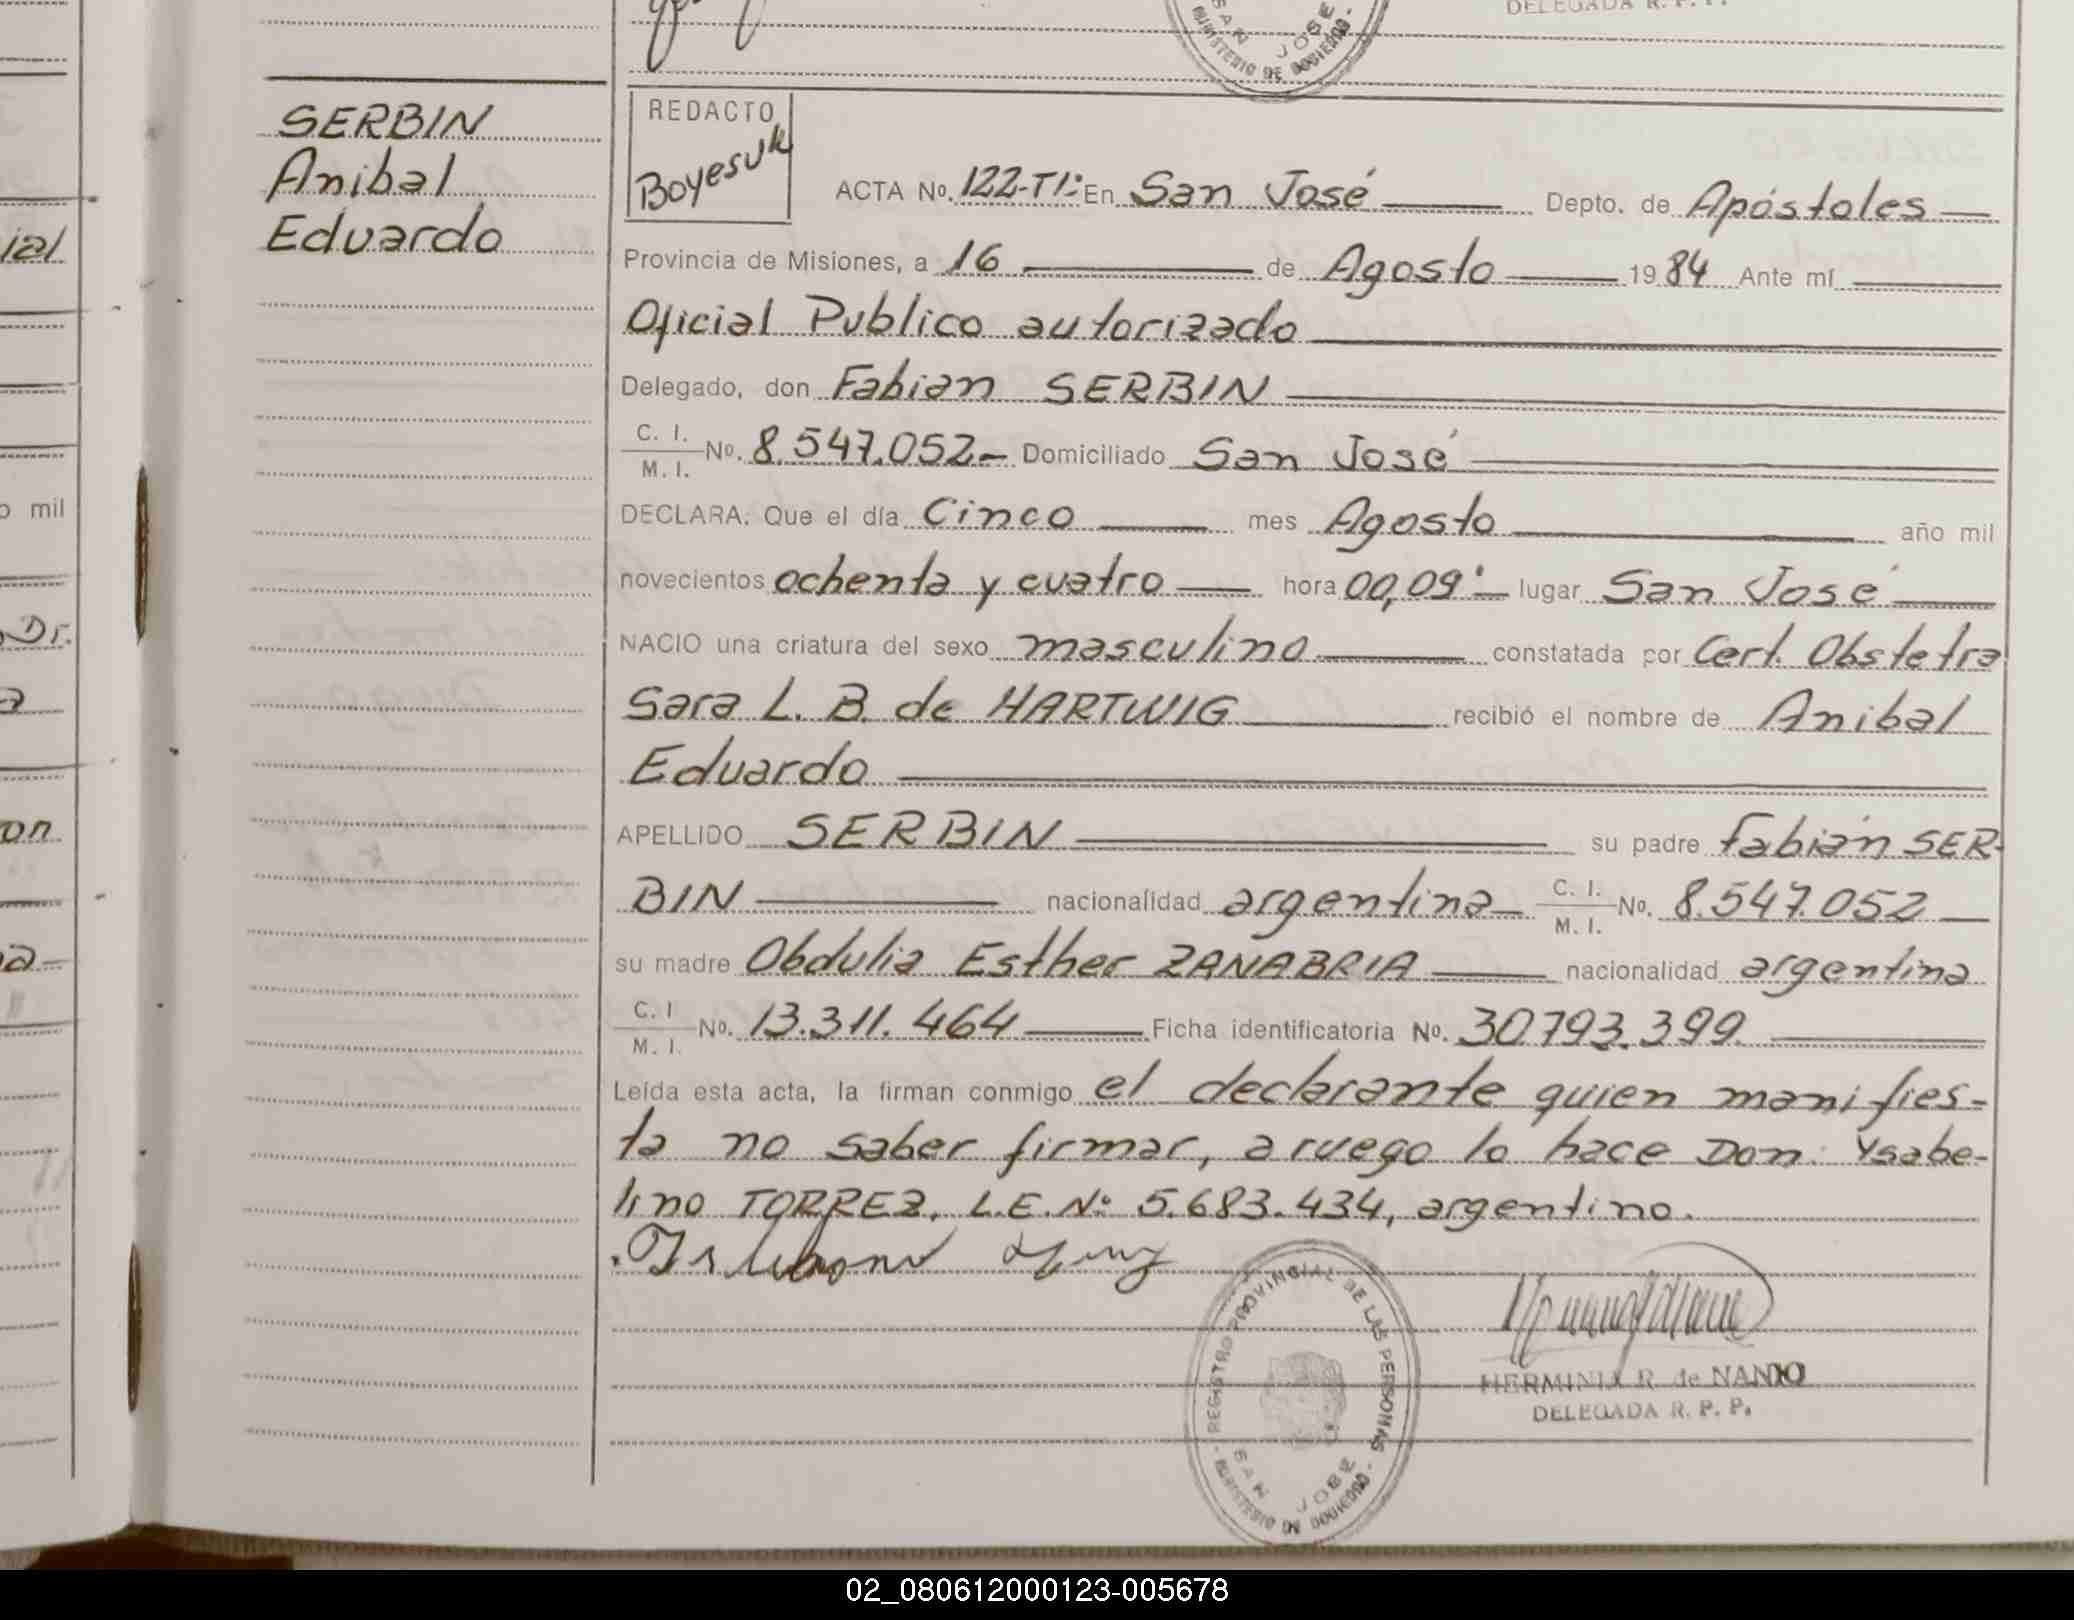 DELEGADA R. P. P.
SAN JOSE
MINISTERIO DE GOBIERNO
SERBIN
Anibal
Eduardo
ial
o mil
Dr.
on
a
REDACTO
Boyesuk
ACTA No. 122-TI: En San José Depto. de Apóstoles
Provincia de Misiones, a 16 de Agosto 1984 Ante mí
Oficial Publico autorizado
Delegado, don Fabian SERBIN
C. I. / M. I. No. 8.547.052- Domiciliado San José
DECLARA: Que el día Cinco mes Agosto año mil
novecientos ochenta y cuatro hora 00,09' lugar San José
NACIO una criatura del sexo masculino constatada por Cert. Obstetra
Sara L. B. de HARTWIG recibió el nombre de Anibal
Eduardo
APELLIDO SERBIN su padre Fabián SER-
BIN nacionalidad argentina C. I. / M. I. No. 8.547.052
su madre Obdulia Esther ZANABRIA nacionalidad argentina
C. I / M. I. No. 13.311.464 Ficha identificatoria No. 30.793.399
Leída esta acta, la firman conmigo el declarante quien manifies-
ta no saber firmar, a ruego lo hace Don: Ysabe-
lino TORREZ, L.E. Nº 5.683.434, argentino.
REGISTRO PROVINCIAL DE LAS PERSONAS
SAN JOSE
MINISTERIO DE GOBIERNO
HERMINIA R. de NANJO
DELEGADA R. P. P.
02_080612000123-005678